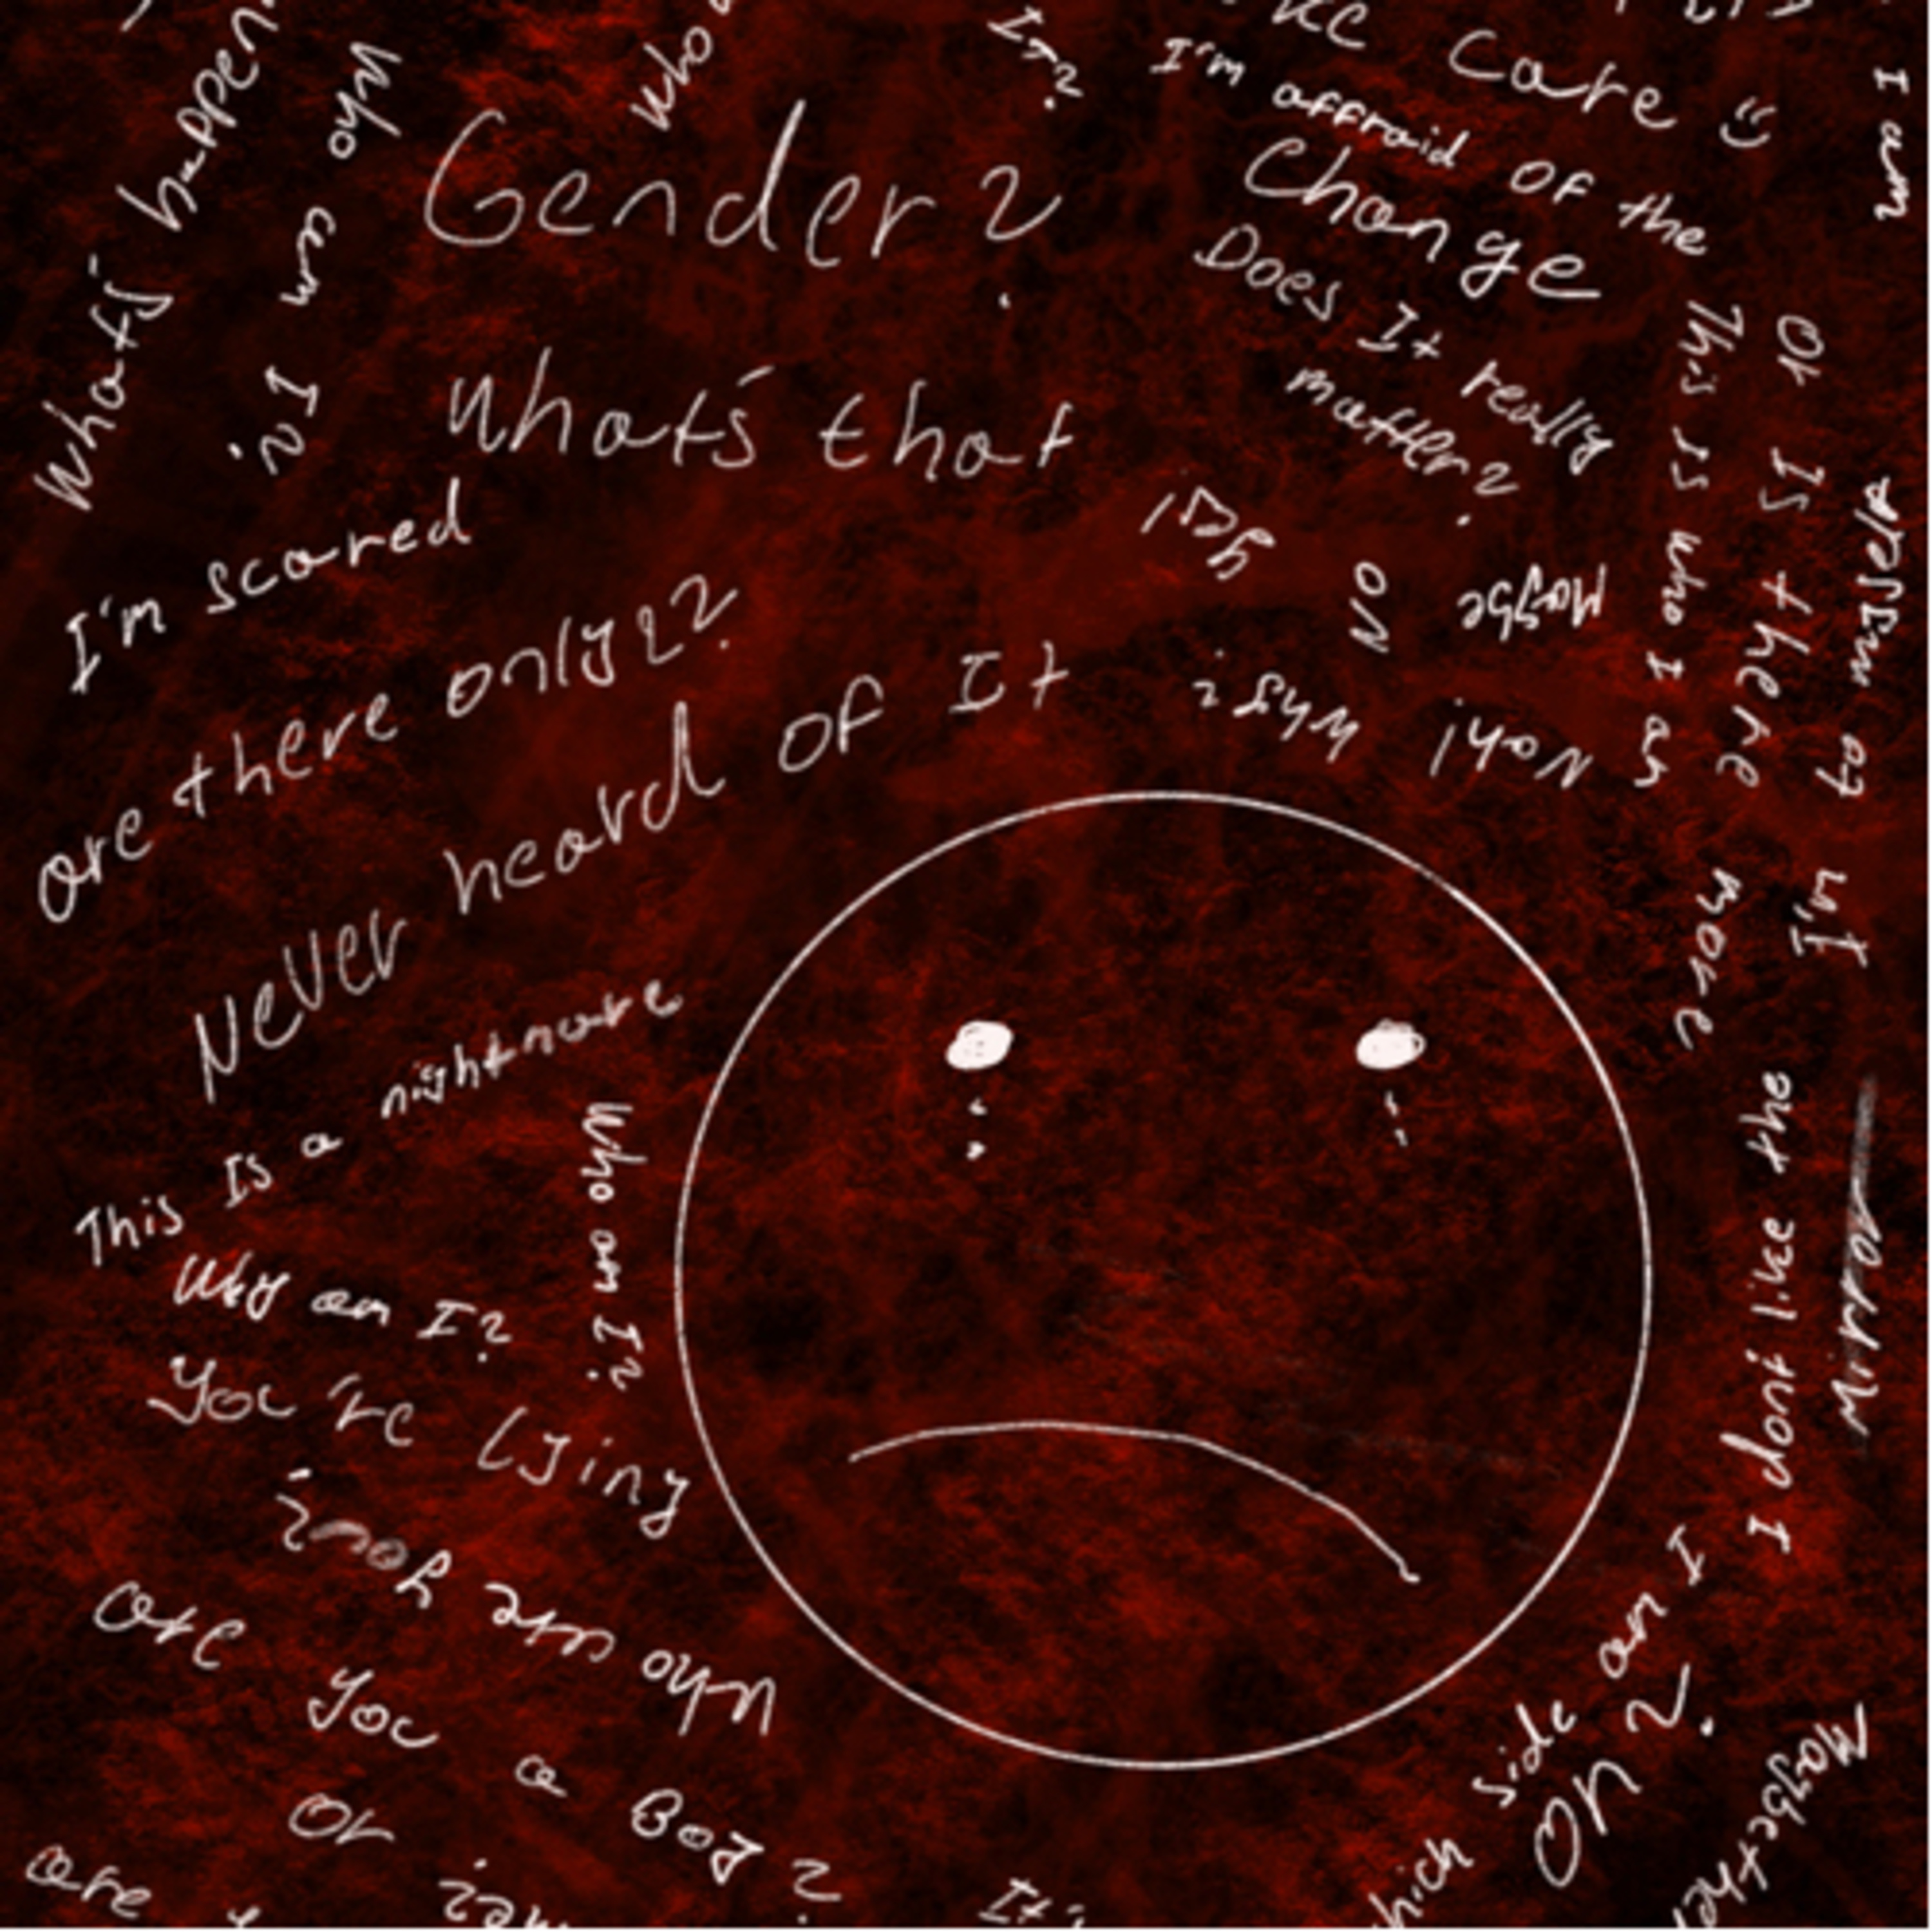 Gender?
what's that
are there only 2?
Never heard of It
I'm scared
What's happen
who am I?
who
It?
Care
I'm affraid of the
Change
Does It really
matter?
yes!
No
Maybe
Why?
Noh!
This is who I am
Or Is there more
I am
I'm to myself
I dont like the
Mirror
This Is a nightmare
Who am I?
Why am I?
You're lying
who are you?
are you a Boy?
or
are
side am I
on?
It's